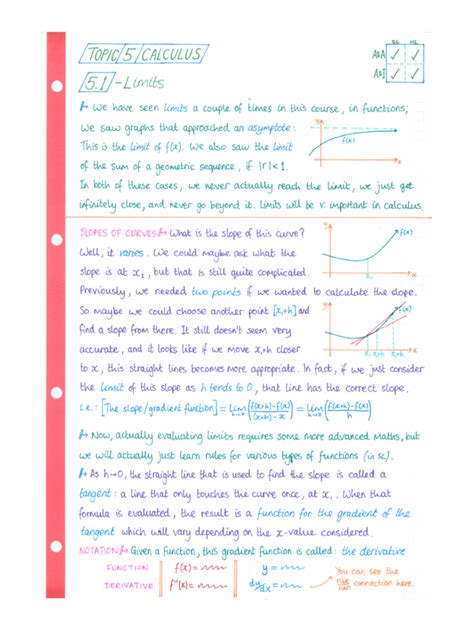 TOPIC 5 CALCULUS
SL HL
A&A ✓ ✓
A&I ✓ ✓
5.1 - Limits
We have seen limits a couple of times in this course, in functions,
we saw graphs that approached an asymptote:
This is the limit of f(x). We also saw the limit
of the sum of a geometric sequence, if |r|<1.
In both of these cases, we never actually reach the limit, we just get
infinitely close, and never go beyond it. Limits will be v. important in calculus.
y
f(x)
x
SLOPES OF CURVES What is the slope of this curve?
Well, it varies. We could maybe ask what the
slope is at x₁, but that is still quite complicated.
Previously, we needed two points if we wanted to calculate the slope.
So maybe we could choose another point [x₁+h] and
find a slope from there. It still doesn't seem very
accurate, and it looks like if we move x₁+h closer
to x, this straight lines becomes more appropriate. In fact, if we just consider
the limit of this slope as h tends to 0, that line has the correct slope.
y
f(x)
x₁
x
y
f(x)
x₁ x₁+h x
i.e.: [The slope/gradient function] = lim h→0 (f(x+h)-f(x))/((x+h)-x) = lim h→0 (f(x+h)-f(x))/h
Now, actually evaluating limits requires some more advanced maths, but
we will actually just learn rules for various types of functions (in SL).
As h→0, the straight line that is used to find the slope is called a
tangent: a line that only touches the curve once, at x₁. When that
formula is evaluated, the result is a function for the gradient of the
tangent which will vary depending on the x-value considered.
NOTATION Given a function, this gradient function is called: the derivative
FUNCTION f(x)= y=
DERIVATIVE f'(x)= dy/dx =
You can see the
rise/run connection here.